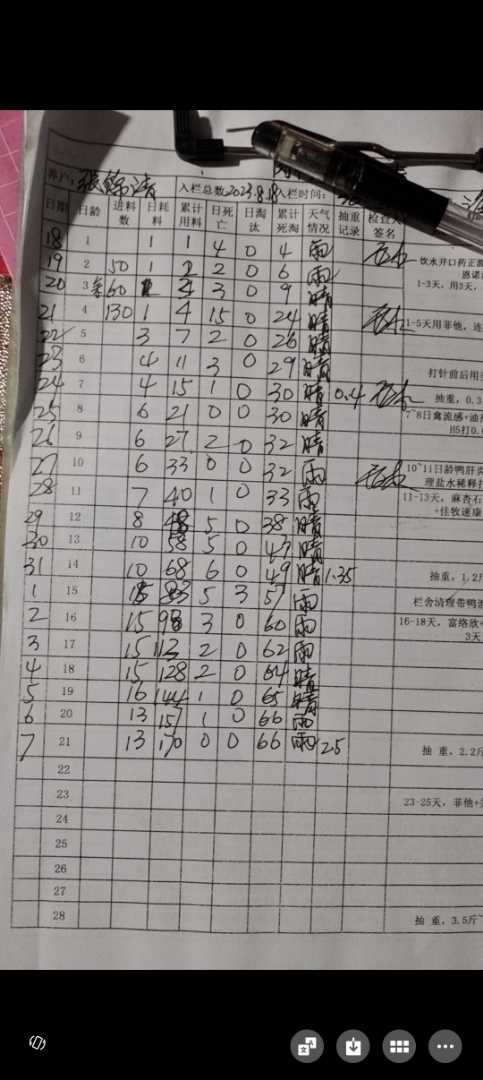 养户: 张锦涛 入栏总数 2023.8.18 入栏时间:
日期 日龄 进料数 日耗料 累计用料 日死亡 日淘汰 累计死淘 天气情况 抽重记录 检查人签名
18 1 1 1 4 0 4 雨 饮水开口药正
恩诺
19 2 50 1 2 2 0 6 雨
20 3 60 3 0 9 晴 1-3天，用3天，
21 4 130 1 4 15 0 24 晴 1-5天用菲他，连
22 5 3 7 2 0 26 晴
23 6 4 11 3 0 29 晴 打针前后用
24 7 4 15 1 0 30 晴 0.4 抽重，0.3
25 8 6 21 0 0 30 晴 7-8日禽流感+油
26 9 6 27 2 0 32 晴 H5打0.
27 10 6 33 0 0 32 雨 10~11日龄鸭肝炎
理盐水稀释打
28 11 7 40 1 0 33 雨 11-13天，麻杏石
+佳牧速康
29 12 8 48 5 0 38 晴
30 13 10 58 5 0 43 晴
31 14 10 68 6 0 49 晴 1.35 抽重，1.2斤
1 15 15 83 5 3 57 雨 栏舍清理带鸭
2 16 15 98 3 0 60 雨 16-18天，富络欣+
3天
3 17 15 113 2 0 62 雨
4 18 15 128 2 0 64 晴
5 19 16 144 1 0 65 晴
6 20 13 157 1 0 66 雨
7 21 13 170 0 0 66 雨 2.5 抽 重，2.2斤
22
23 23-25天，菲他+
24
25
26
27
28 抽 重，3.5斤